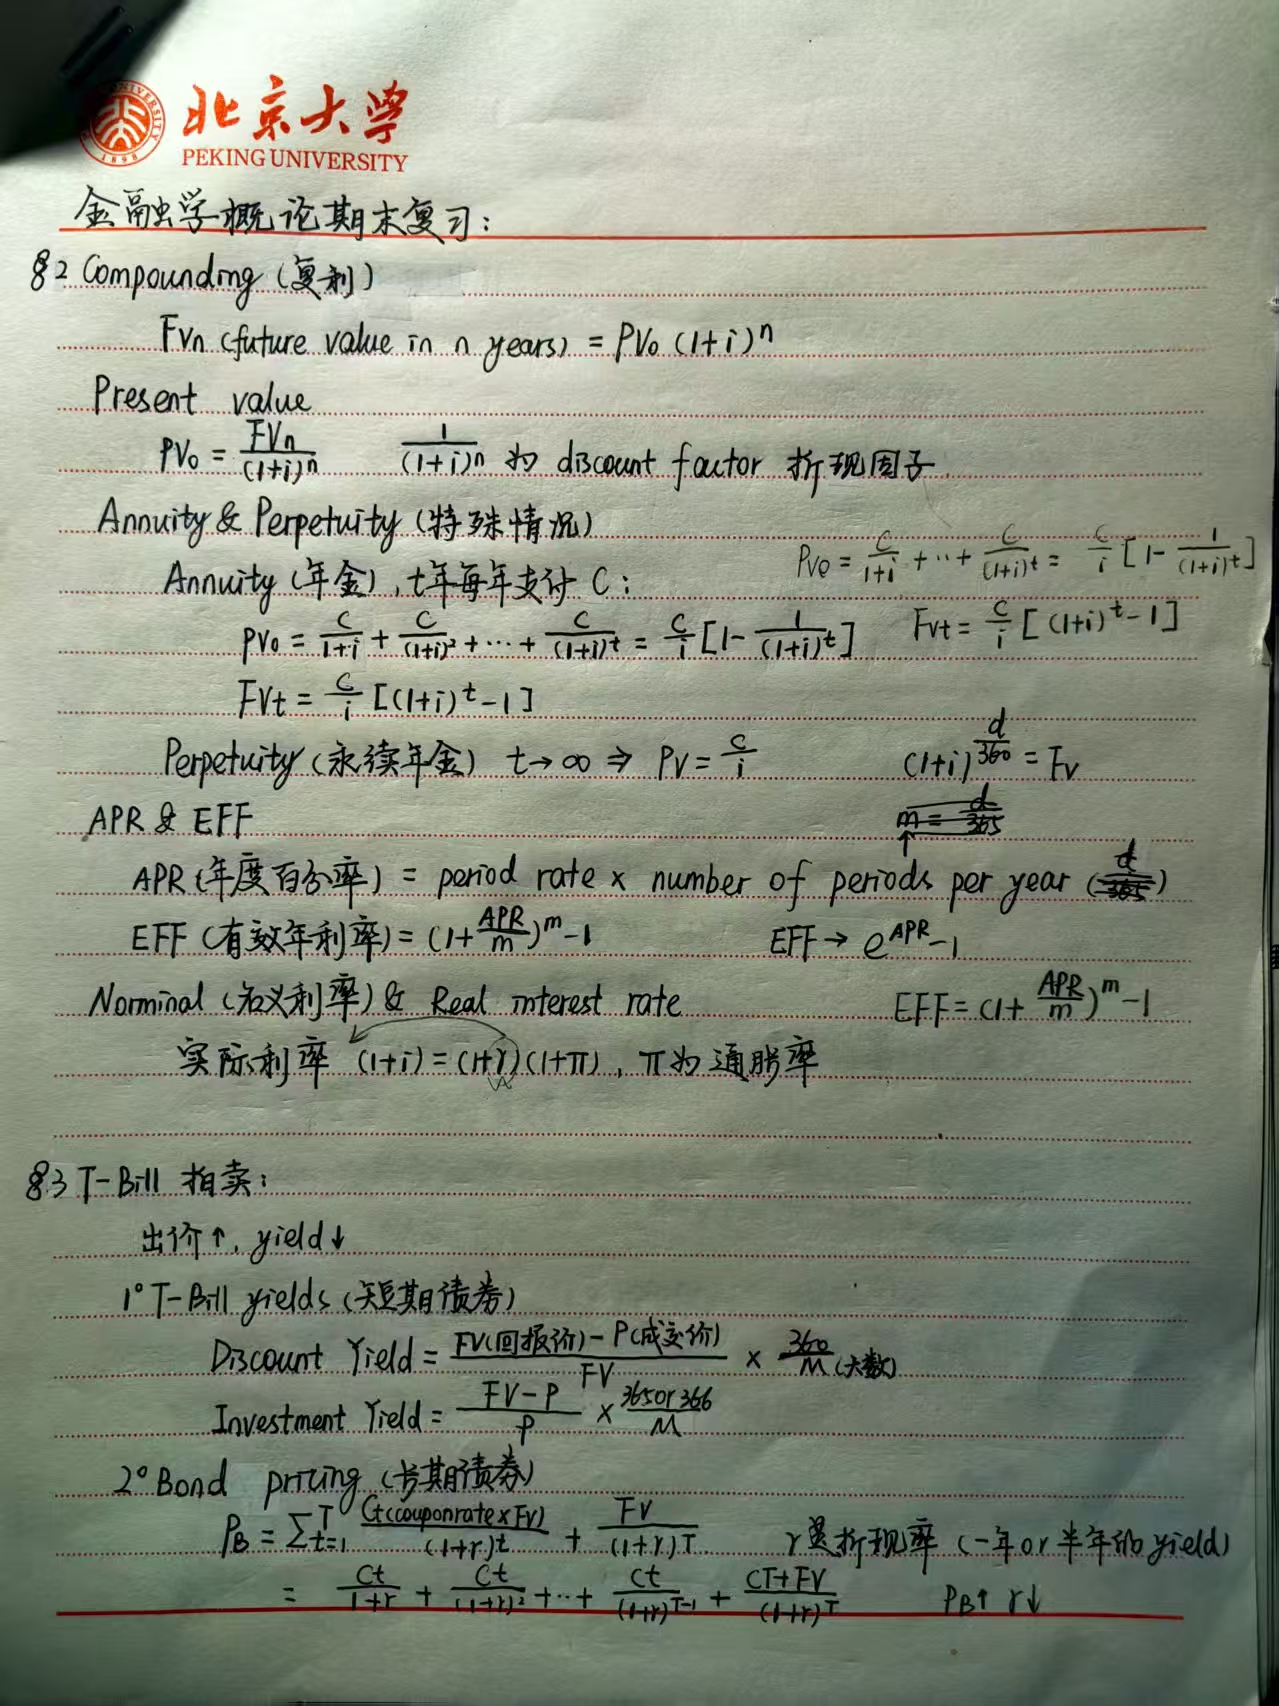 北京大学
PEKING UNIVERSITY
金融学概论期末复习:
§2 Compounding (复利)
FVn (future value in n years) = PV₀ (1+i)ⁿ
Present value
PV₀ = FVn/(1+i)ⁿ 1/(1+i)ⁿ 为 discount factor 折现因子
Annuity & Perpetuity (特殊情况)
PV₀ = C/(1+i) + ··· + C/(1+i)^t = C/i [1 - 1/(1+i)^t]
Annuity (年金), t年每年支付 C:
PV₀ = C/(1+i) + C/(1+i)² + ··· + C/(1+i)^t = C/i [1 - 1/(1+i)^t] FVt = C/i [(1+i)^t - 1]
FVt = C/i [(1+i)^t - 1]
Perpetuity (永续年金) t→∞ ⇒ PV = C/i (1+i)^(d/360) = FV
APR & EFF m = d/365
APR (年度百分率) = period rate × number of periods per year (d/365)
EFF (有效年利率) = (1+APR/m)^m - 1 EFF → e^APR - 1
Norminal (名义利率) & Real interest rate EFF = (1+APR/m)^m - 1
实际利率 (1+i) = (1+r)(1+π), π为通胀率
§3 T-Bill 拍卖:
出价↑, yield↓
1° T-Bill yields (短期债券)
Discount Yield = (FV(回报价) - P(成交价))/FV × 360/M(天数)
Investment Yield = (FV-P)/P × 365or366/M
2° Bond pricing (长期债券)
P_B = Σ_{t=1}^T Ct(couponrate×FV)/(1+r)^t + FV/(1+r)^T r是折现率 (一年or半年的yield)
= Ct/(1+r) + Ct/(1+r)² + ··· + Ct/(1+r)^(T-1) + (CT+FV)/(1+r)^T P_B↑ r↓